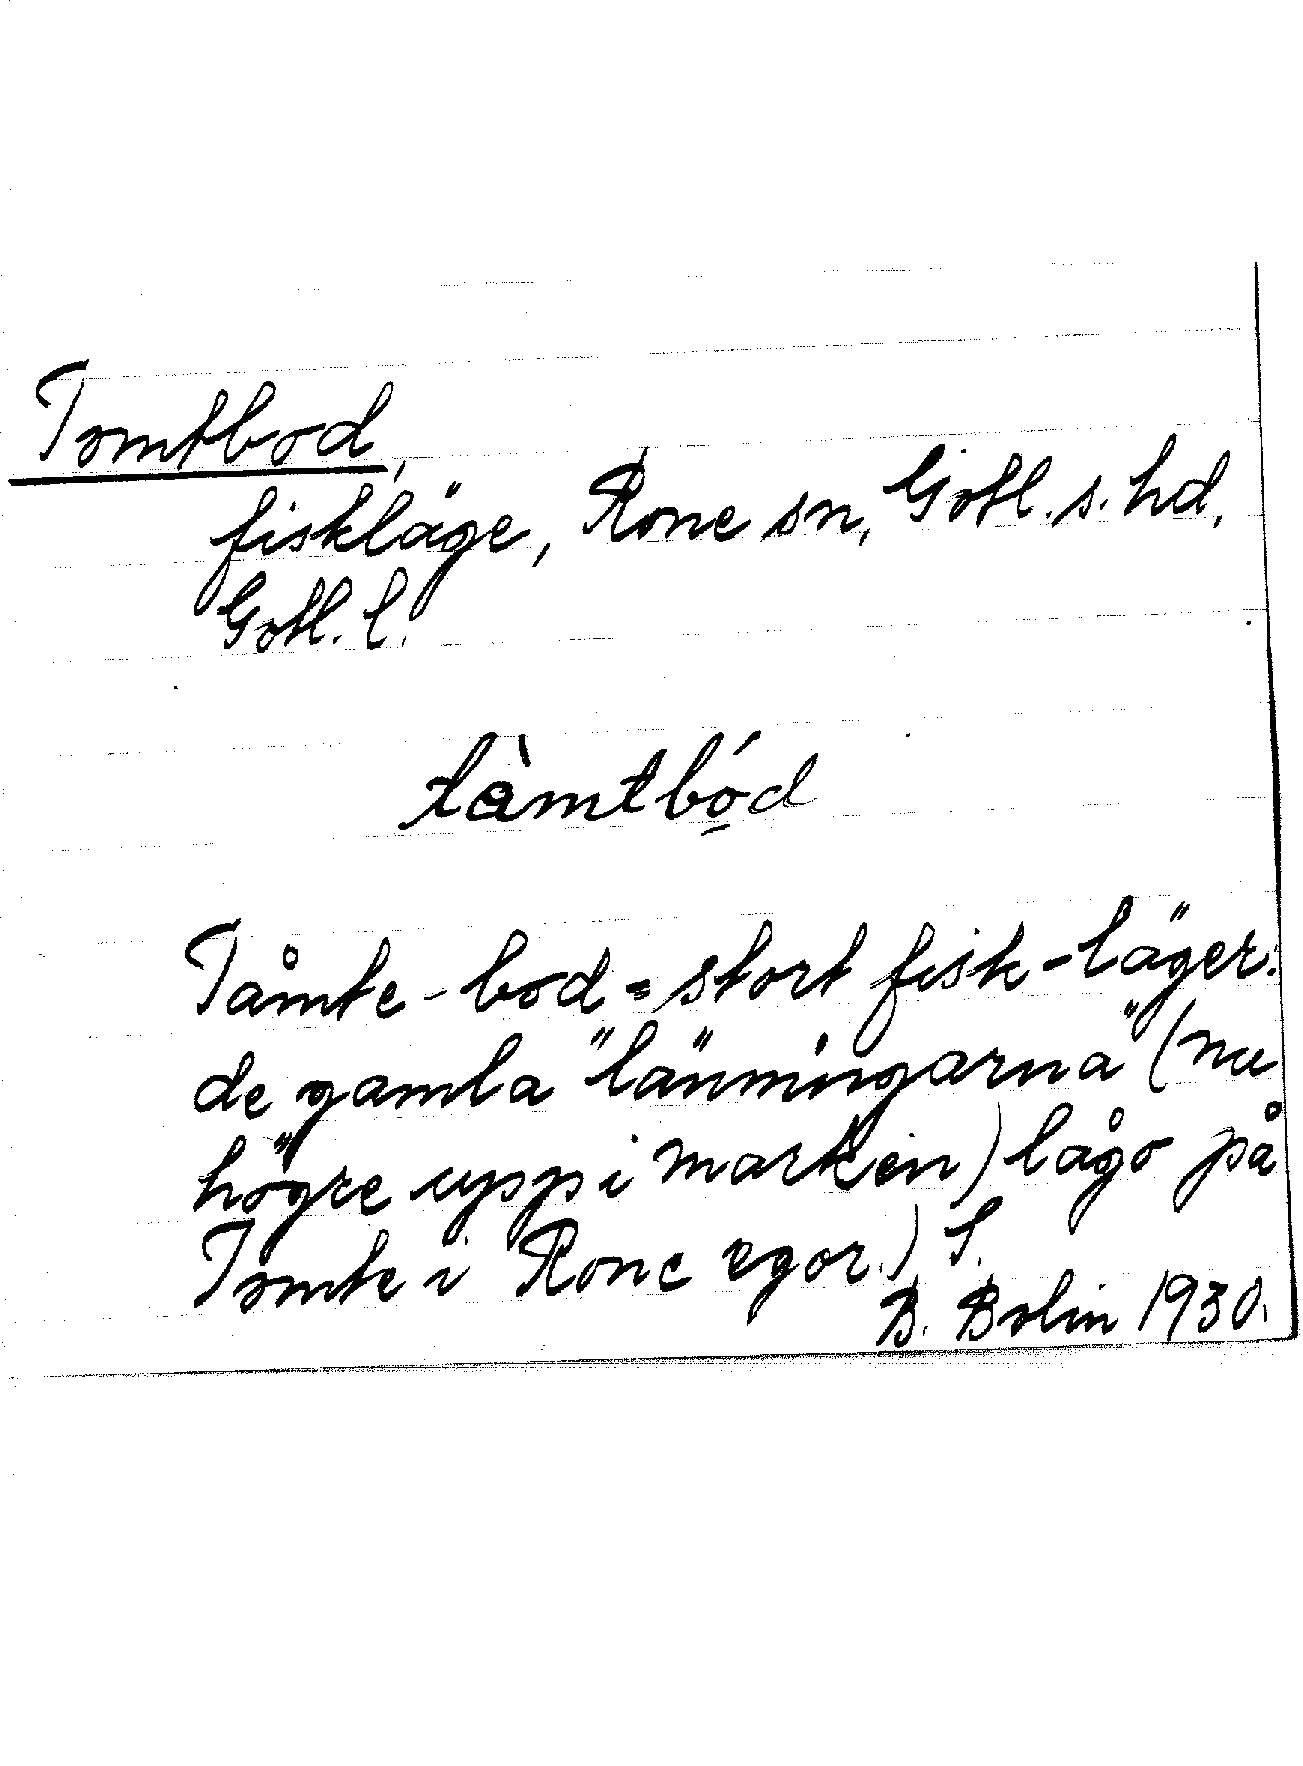 Tomtbod,
fiskläge, Rone sn, Gotl. s. hd,
Gotl. l.
tåmtbod
Tåmte-bod = stort fisk-läger:
de gamla "länningarna" (nu
högre upp i marken) lågo på
Tomte i Rone egor.) S.
B. Bolin 1930.